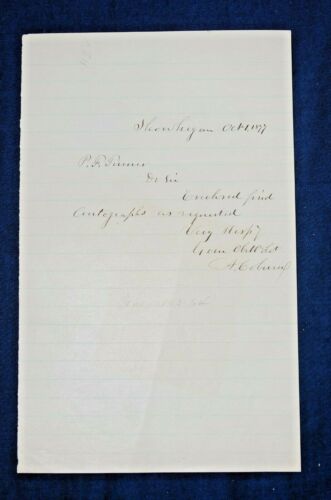 Skowhegan Oct 1, 1877
P. F.
Dr Sir
Enclosed find
autographs as requested
Very Resp'y
Your Obt Svt
A. Coburn